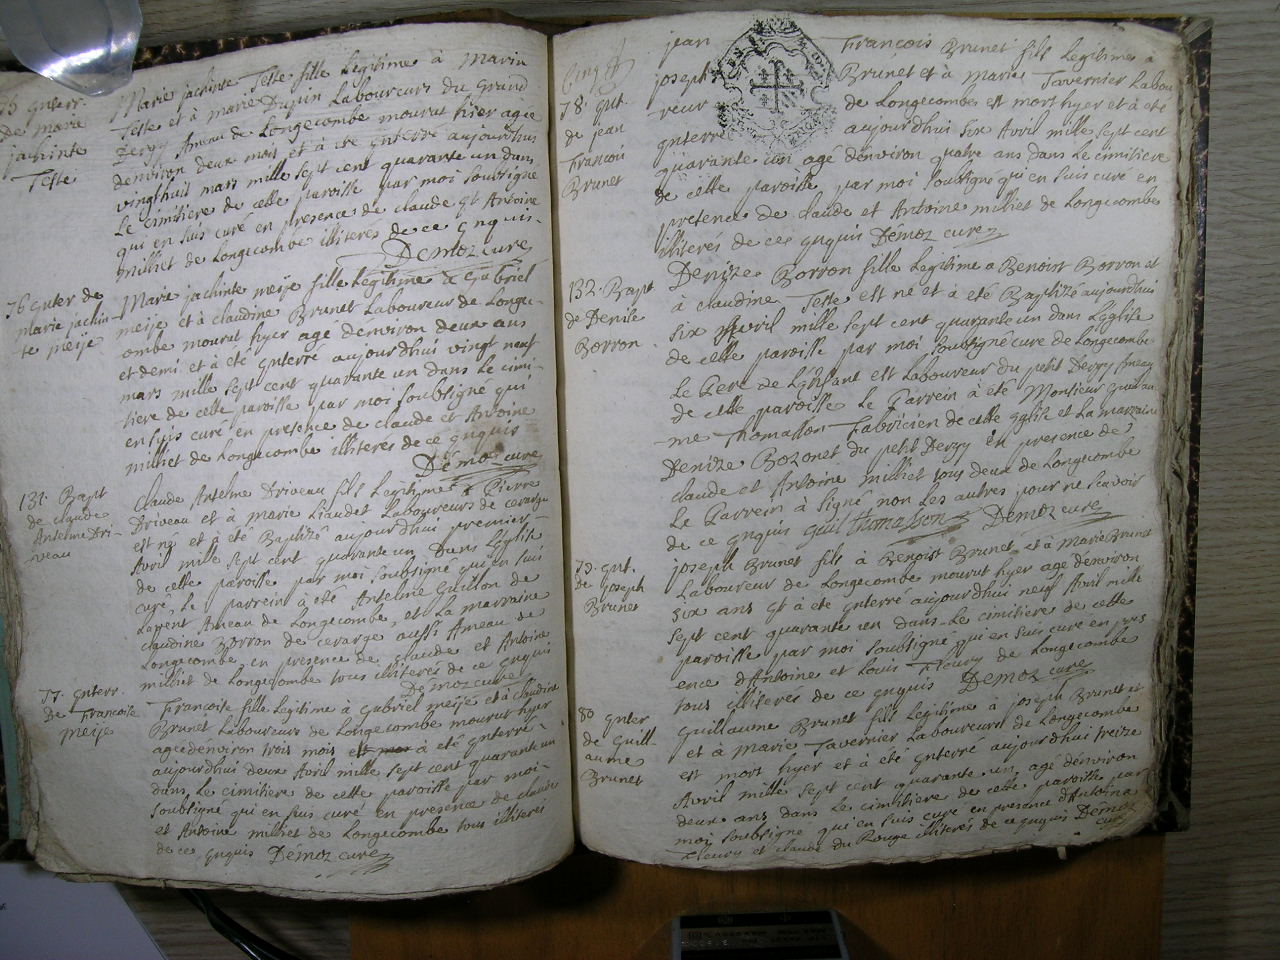 75 gnterr.
de marie
jachinte
Teste
Marie jachinte Teste fille Legitime à Marin
Teste et à marie Dupin Laboureurs du Grand
Dezry Ameau de Longecombe mourut hier agée
denviron deux mois et à ete gnterré aujourdhui
vingthuit mars mille sept cent quarante un dans
Le cimitiere de cette paroisse par moi soubsigné
qui en suis curé en presence de claude et Antoine
milliet de Longecombe illiterés de ce gnquis.
Démoz curé
76 gnter de
marie jachin-
te meije
Marie jachinte meije fille Legitime à Gabriel
meije et à claudine Brunet Laboureur de Longe-
combe mourut hyer agé denviron deux ans
et demi et à été gnterré aujourdhui vingt neuf
mars mille sept cent quarante un dans Le cimi-
tiere de cette paroisse par moi soubsigné qui
en suis curé en presence de claude et Antoine
milliet de Longecombe illiterés de ce gnquis
Démoz curé
131. Bapt
de claude
Antelme Dri-
veau
Claude Antelme Driveau fils Legitime à Pierre
Driveau et à marie Liaudet Laboureurs de cevarge
est né et à été Baptizé aujourdhui premier
Avril mille sept cent quarante un dans L'eglise
de cette paroisse par moi soubsigné qui en suis
curé, Le parrein à été Antelme Guillon de
Lapent Ameau de Longecombe, et La marraine
claudine Borron de cevarge aussi Ameau de
Longecombe en presence de claude et Antoine
milliet de Longecombe tous illiterés de ce gnquis
Démoz curé
77. gnterr.
De Francoise
meije
Francoise fille Legitime à Gabriel meije et à claudine
Brunet Laboureurs de Longecombe mourut hyer
agée denviron trois mois et à été gnterré
aujourdhui deux Avril mille sept cent quarante un
dans Le cimitiere de cette paroisse par moi
soubsigné qui en suis curé en presence de claude
et Antoine milliet de Longecombe tous illiterés
de ce gnquis Démoz curé
78. gnt.
de jean
Francois
Brunet
jean Francois Brunet fils Legitime à
joseph Brunet et à Marie Tavernier Labou
reur de Longecombe est mort hyer et à été
gnterré aujourdhui six Avril mille sept cent
quarante un agé denviron quatre ans dans Le cimitiere
de cette paroisse par moi soubsigné qui en suis curé en
presence de claude et Antoine milliet de Longecombe
illiterés de ces gnquis Démoz curé
132. Bapt
de Denise
Borron
Denize Borron fille Legitime a Benoist Borron et
à claudine Teste est né et à été Baptizé aujourdhui
six Avril mille sept cent quarante un dans L'eglise
de cette paroisse par moi soubsigné curé de Longecombe
Le Pere de L'enfant est Laboureur du petit Dezry Ameau
de cette paroisse Le Parrein à été Monsieur Guillau
me Thomasson Fabricien de cette Eglise et La marraine
Denize Bozonet du petit Dezry en presence de
claude et Antoine milliet tous deux de Longecombe
Le Parrein à signé non Les autres pour ne scavoir
de ce gnquis Guill Thomasson Démoz curé
79. gnt.
de joseph
Brunet
joseph Brunet fils à Benoist Brunet et à Marie Brunet
Laboureur de Longecombe mourut hyer agé denviron
six ans et à été gnterré aujourdhui neuf Avril mille
sept cent quarante un dans Le cimitiere de cette
paroisse par moi soubsigné qui en suis curé en pres
ence d'Antoine et Louis Fleury de Longecombe
tous illiterés de ce gnquis Démoz curé
80 gnter
de Guill-
aume
Brunet
Guillaume Brunet fils Legitime à joseph Brunet et
et à Marie Tavernier Laboureurs de Longecombe
est mort hyer et à été gnterré aujourdhui treize
Avril mille sept cent quarante un, agé denviron
deux ans dans Le cimitiere de cette paroisse par
moi soubsigné qui en suis curé en presence d'Antoine
Fleury et claude du Rouge illiterés de ce gnquis Démoz
curé